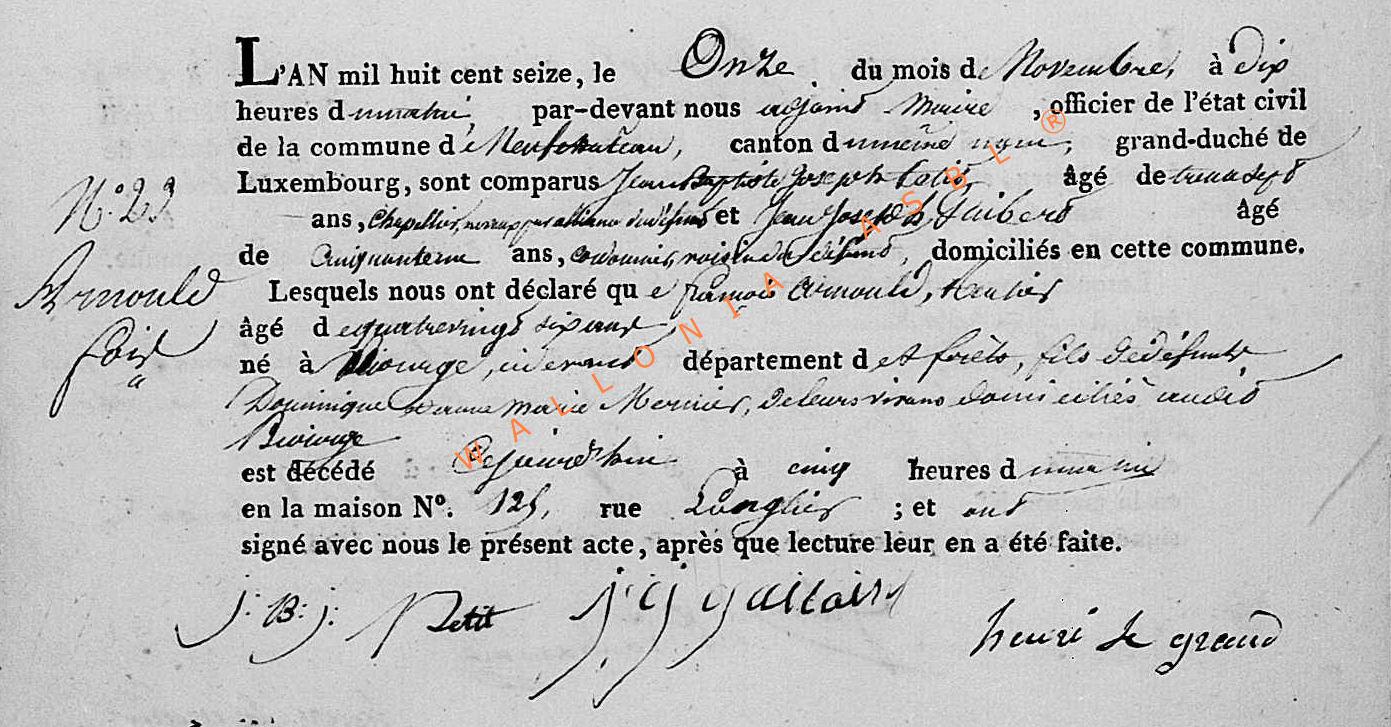 L'AN mil huit cent seize, le Onze du mois de Novembre, à dix
heures du matin par-devant nous adjoint Maire, officier de l'état civil
de la commune de Neufchateau, canton du même nom, grand-duché de
N.° 23 Luxembourg, sont comparus Jean Baptiste Joseph Petit âgé de trente sept
ans, Chapellier, neveu par alliance du défunt et Jean Joseph âgé
de Cinquante un ans, cordonnier, voisin du défunt, domiciliés en cette commune.
Arnould Lesquels nous ont déclaré que françois Arnould, Rentier
âgé de quatrevingt six ans
né à département des forêts, fils de défunts
Dominique et anne Marie Mernier, de leurs vivans domiciliés audit
est décédé Cejourd'hui à cinq heures du matin
en la maison N°. 125, rue Longlier ; et ont
signé avec nous le présent acte, après que lecture leur en a été faite.
J: B: J: Petit J J henri le grand
WALLONIA ASBL ®